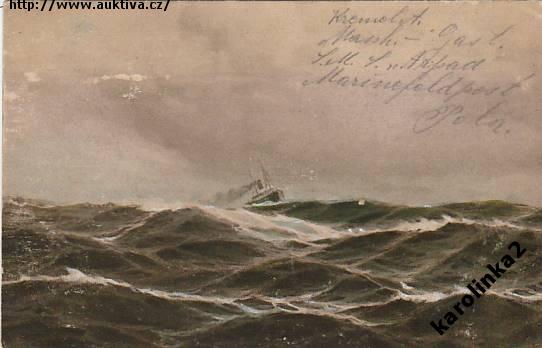 http://www.auktiva.cz/
Kremel A.
"Masch.- Gast.
S.M.S. "Arpad
Marinefeldpost
Pola.
karolinka2